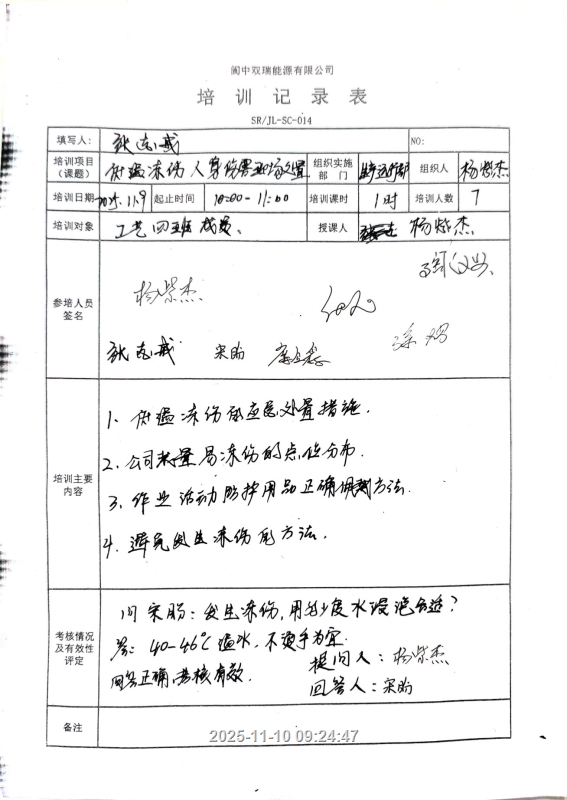 阆中双瑞能源有限公司
培训记录表
SR/JL-SC-014
填写人: 张志成 NO:
培训项目(课题) 低温冻伤人身伤害现场处置 组织实施部门 生产运行部 组织人 杨紫杰
培训日期 2025.11.9 起止时间 10:00-11:00 培训课时 1时 培训人数 7
培训对象 工艺四班成员、 授课人 杨紫杰
参培人员签名
杨紫杰
张志成 宋盼
培训主要内容
1、低温冻伤的应急处置措施.
2、公司易冻伤的点位分布.
3、作业活动防护用品正确佩戴方法.
4、避免发生冻伤的方法.
考核情况及有效性评定
问宋盼:发生冻伤,用多少度水浸泡合适?
答:40-46℃温水,不烫手为宜.
提问人:杨紫杰
回答正确,考核有效.
回答人:宋盼
备注
2025-11-10 09:24:47